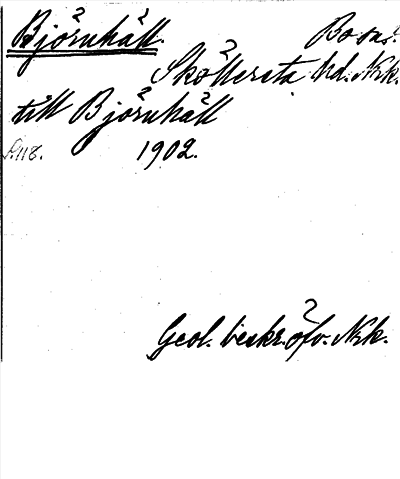 Björnhäll. Bosn.
Sköllersta hd. Nrk.
till Björnhäll
S. 118. 1902.
Geol. beskr. öfv. Nrk.